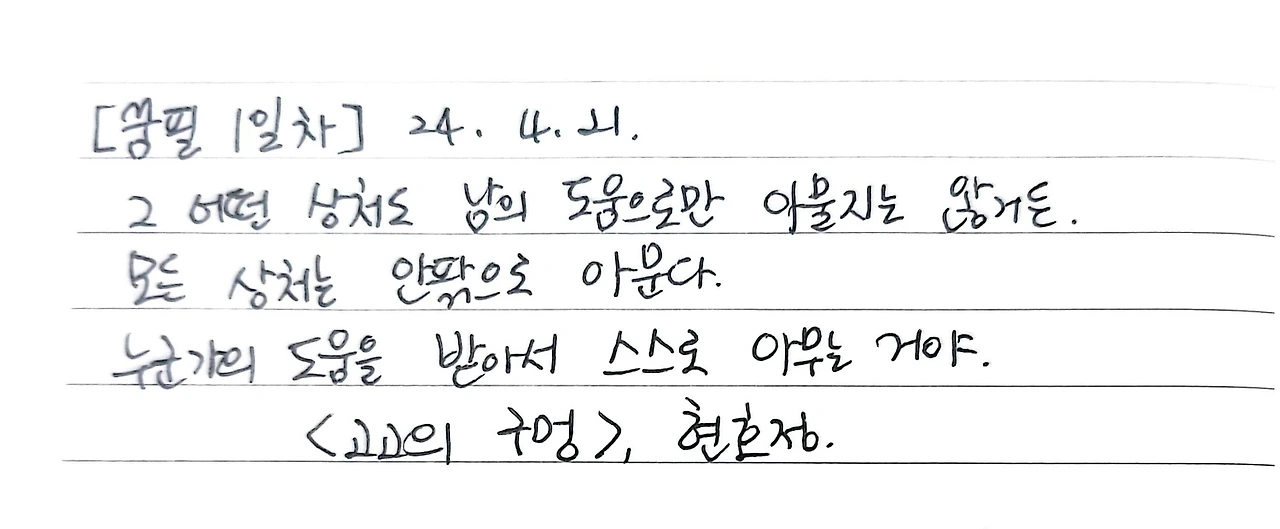 [쭝필 1일차] 24. 4. 21.
그 어떤 상처도 남의 도움으로만 아물지는 않거든.
모든 상처는 안팎으로 아문다.
누군가의 도움을 받아서 스스로 아무는 거야.
<고고의 구멍>, 현호정.